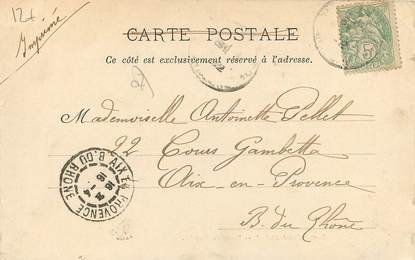 12+
Imprimé
CARTE POSTALE
Ce côté est exclusivement réservé à l'adresse.
5
Mademoiselle Antoinette Pellet
22 Cours Gambetta
Aix-en-Provence
B. du Rhône
AIX EN PROVENCE B. DU RHONE